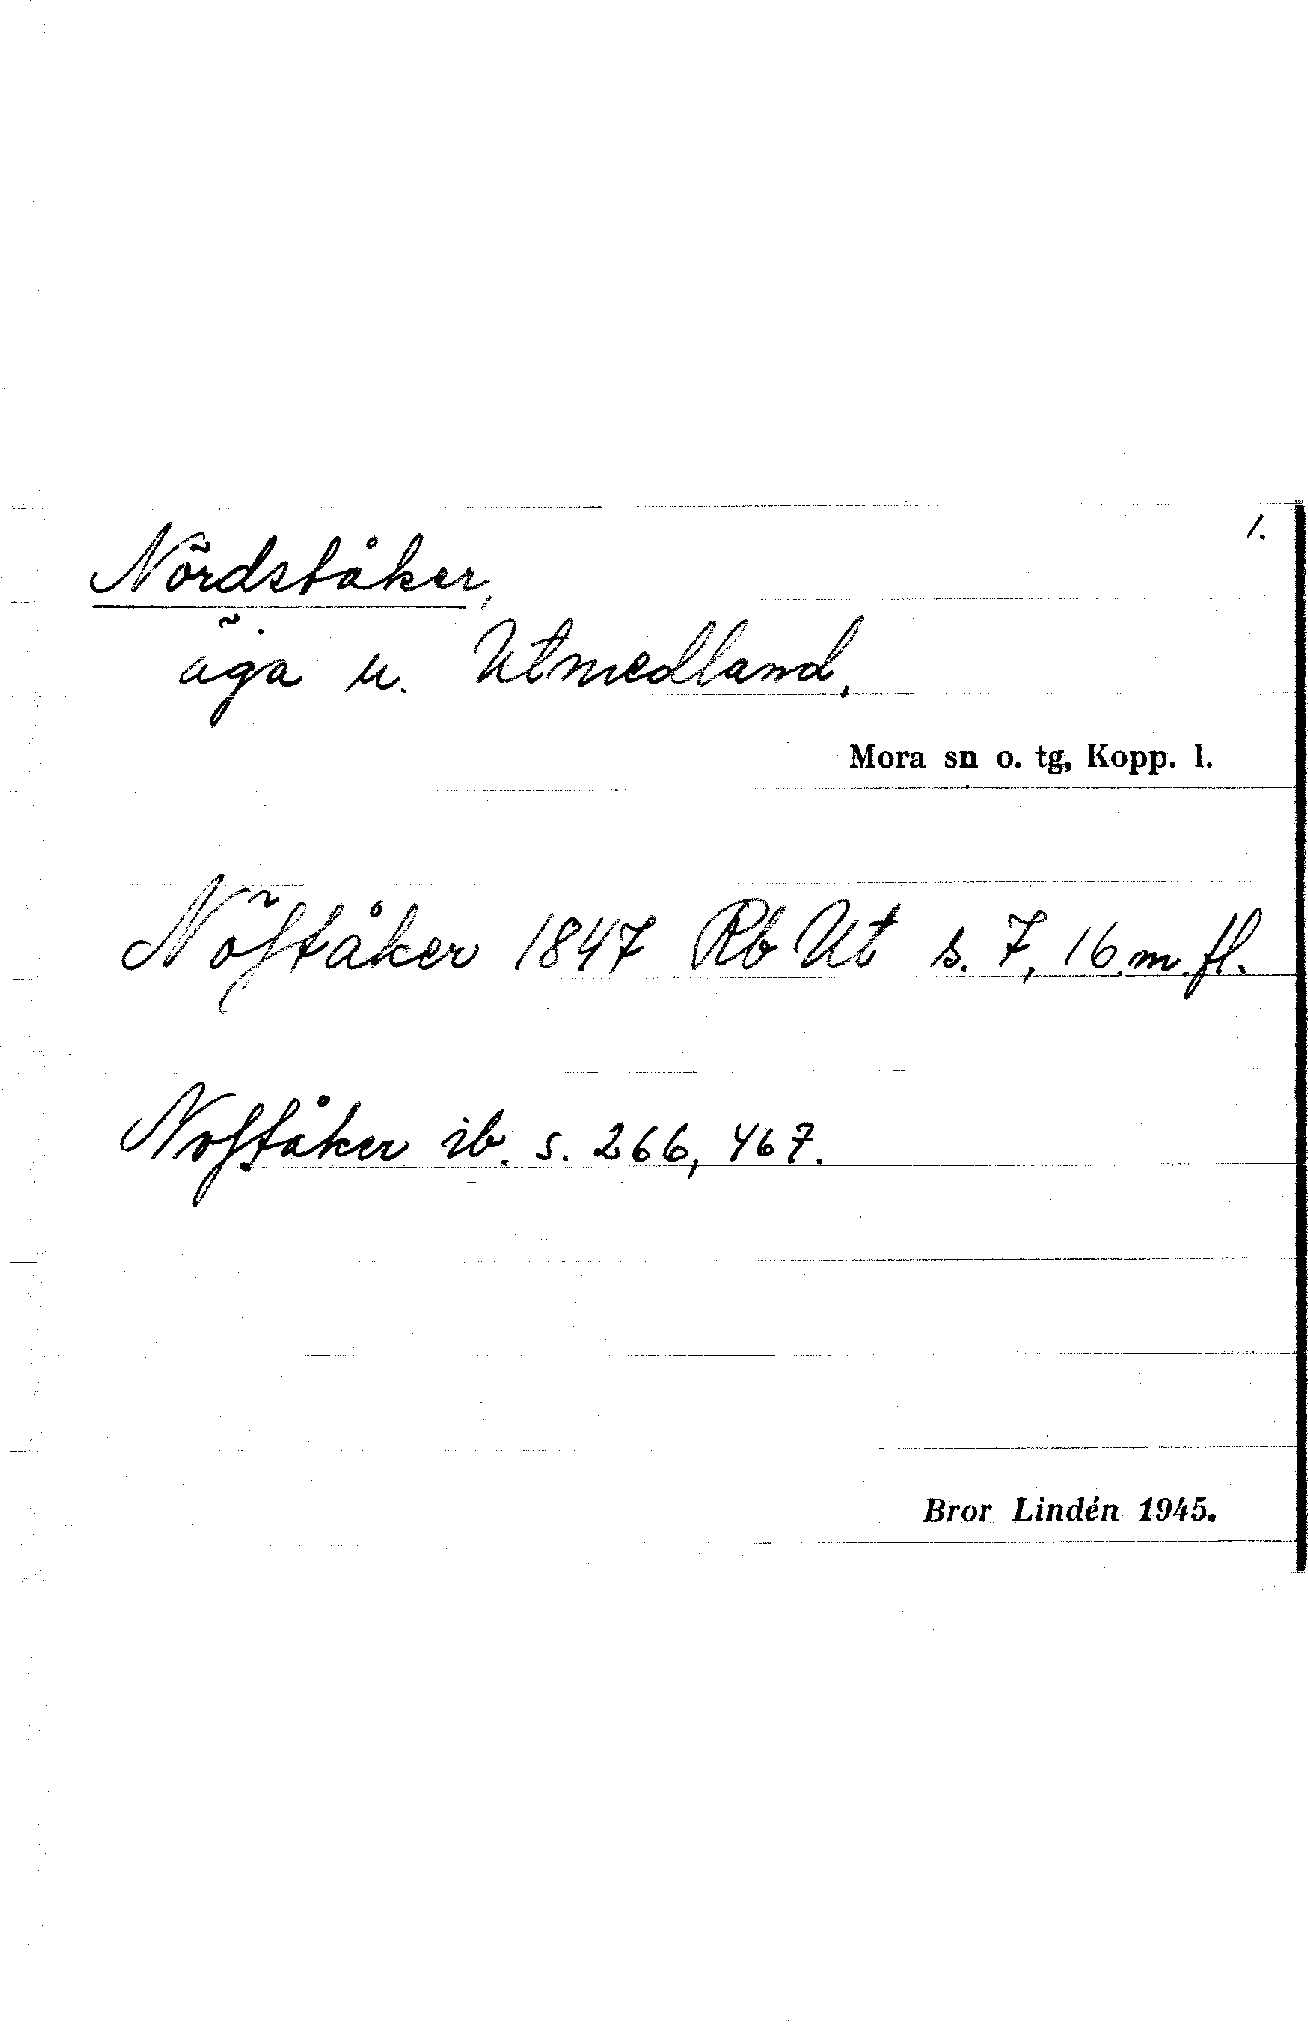 1.
Nördståker,
äga u. Utmedland.
Mora sn o. tg, Kopp. l.
Nöſtåker 1847 Rb Ut s. 7, 16 m. fl.
Noſtåker ib. s. 266, 467.
Bror Lindén 1945.